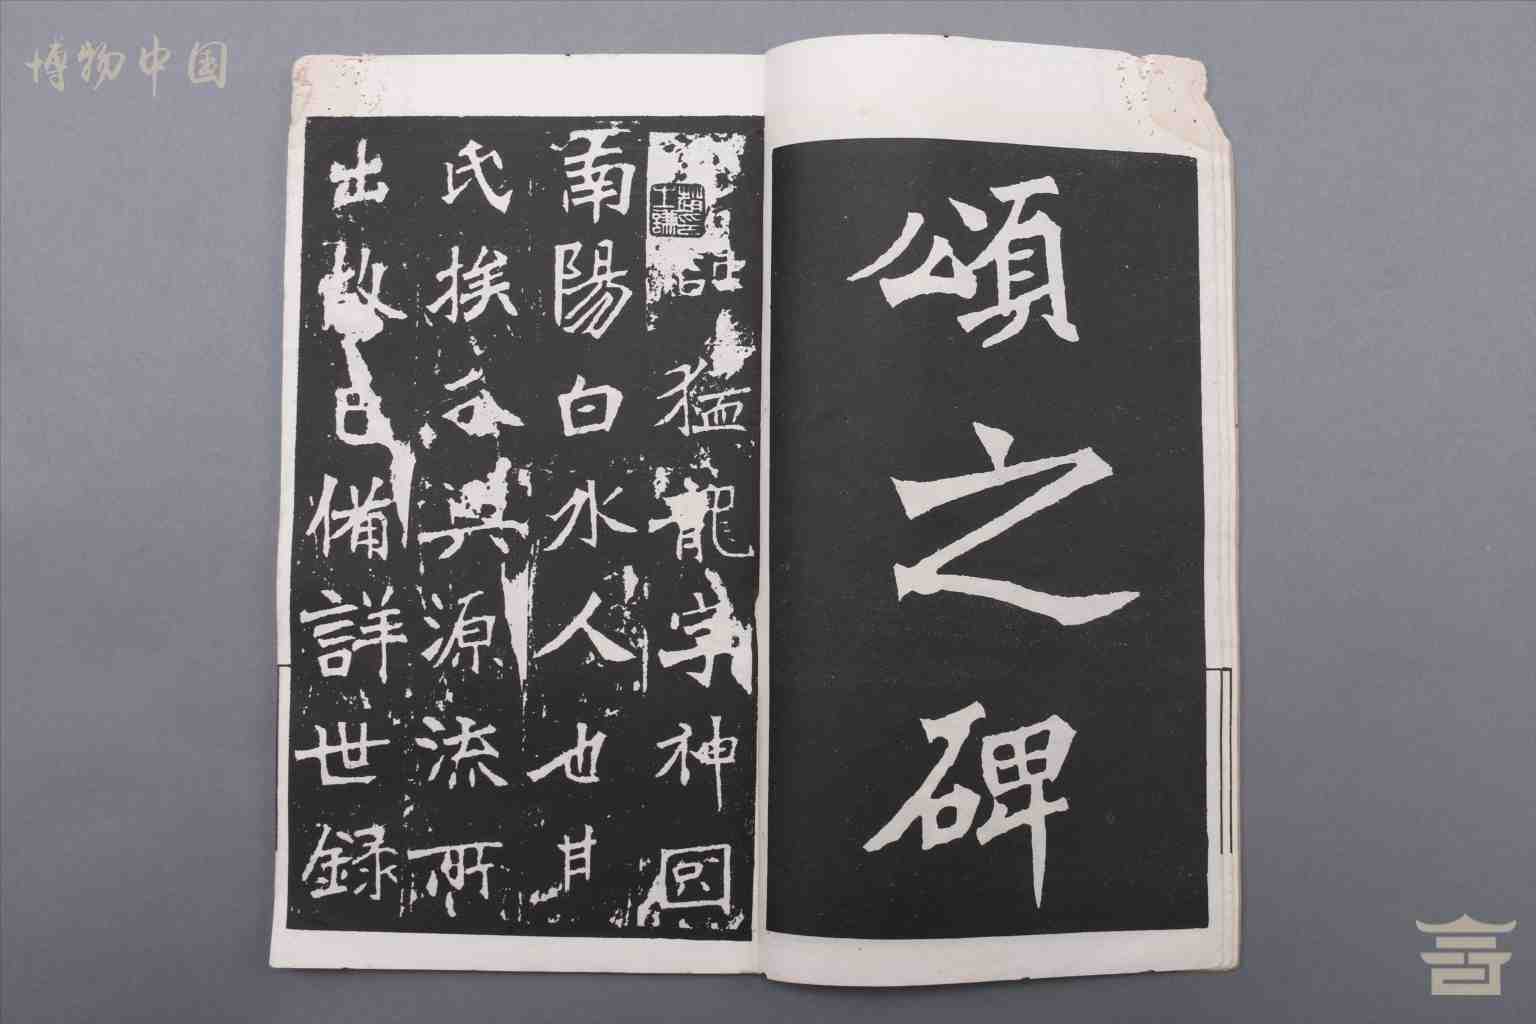 博物中国
頌之碑
諱猛龍字神
南陽白水人也
氏族分興源流所
出故已備詳世錄
趙印之謙